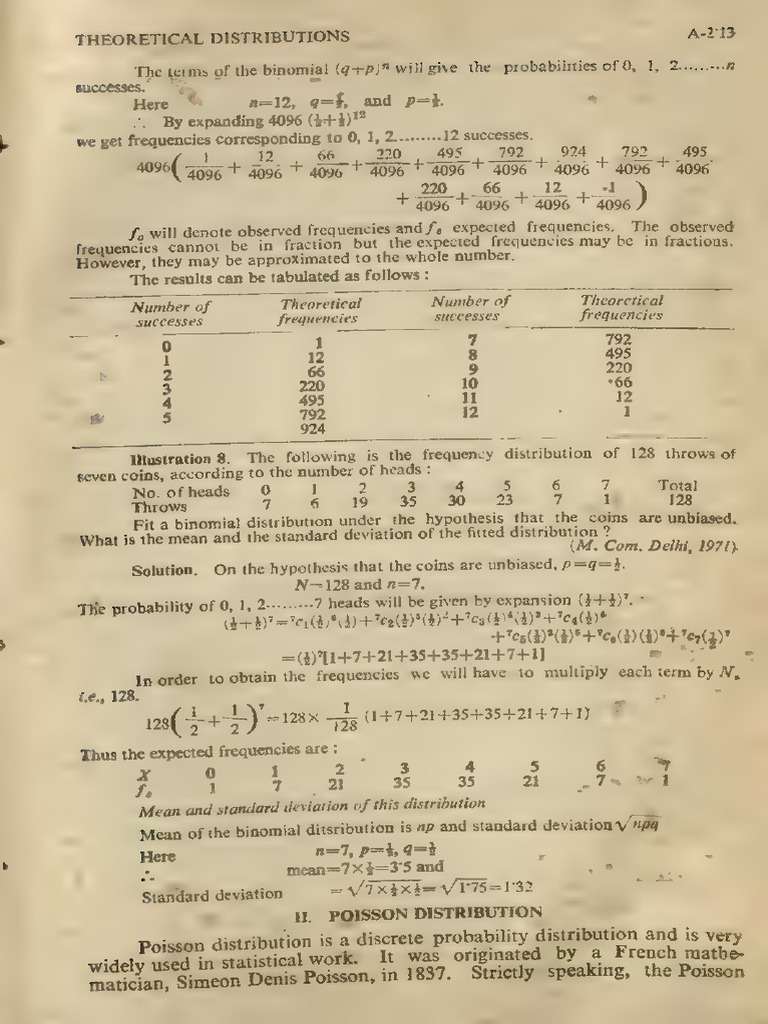 THEORETICAL DISTRIBUTIONS
A-2·13
The terms of the binomial (q+p)ⁿ will give the probabilities of 0, 1, 2.........n
successes.
Here n=12, q=½, and p=½.
∴ By expanding 4096 (½+½)¹²
we get frequencies corresponding to 0, 1, 2.........12 successes.
4096(1/4096 + 12/4096 + 66/4096 + 220/4096 + 495/4096 + 792/4096 + 924/4096 + 792/4096 + 495/4096
+ 220/4096 + 66/4096 + 12/4096 + 1/4096)
fₒ will denote observed frequencies and fₑ expected frequencies. The observed
frequencies cannot be in fraction but the expected frequencies may be in fractions.
However, they may be approximated to the whole number.
The results can be tabulated as follows :
Number of successes Theoretical frequencies Number of successes Theoretical frequencies
0 1 7 792
1 12 8 495
2 66 9 220
3 220 10 66
4 495 11 12
5 792 12 1
924
Illustration 8. The following is the frequency distribution of 128 throws of
seven coins, according to the number of heads :
No. of heads 0 1 2 3 4 5 6 7 Total
Throws 7 6 19 35 30 23 7 1 128
Fit a binomial distribution under the hypothesis that the coins are unbiased.
What is the mean and the standard deviation of the fitted distribution ?
(M. Com. Delhi, 1971).
Solution. On the hypothesis that the coins are unbiased, p=q=½.
N=128 and n=7.
The probability of 0, 1, 2.........7 heads will be given by expansion (½+½)⁷.
(½+½)⁷=⁷c₁(½)⁶(½)+⁷c₂(½)⁵(½)²+⁷c₃(½)⁴(½)³+⁷c₄(½)⁶
+⁷c₅(½)²(½)⁵+⁷c₆(½)(½)⁶+⁷c₇(½)⁷
=(½)⁷[1+7+21+35+35+21+7+1]
In order to obtain the frequencies we will have to multiply each term by N,
i.e., 128.
128(1/2 + 1/2)⁷=128× 1/128 (1+7+21+35+35+21+7+1)
Thus the expected frequencies are :
X 0 1 2 3 4 5 6 7
fₑ 1 7 21 35 35 21 7 1
Mean and standard deviation of this distribution
Mean of the binomial ditsribution is np and standard deviation √npq
Here n=7, p=½, q=½
∴ mean=7×½=3·5 and
Standard deviation =√7×½×½=√1·75=1·32
II. POISSON DISTRIBUTION
Poisson distribution is a discrete probability distribution and is very
widely used in statistical work. It was originated by a French mathe-
matician, Simeon Denis Poisson, in 1837. Strictly speaking, the Poisson